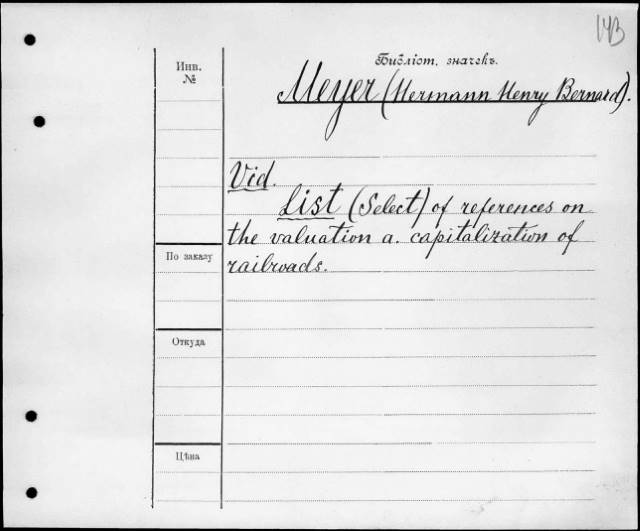 143
Библіот. значекъ.
Инв.
№
Meyer (Hermann Henry Bernard).
Vid.
List (Select) of references on
the valuation a. capitalization of
railroads.
По заказу
Откуда
Цѣна